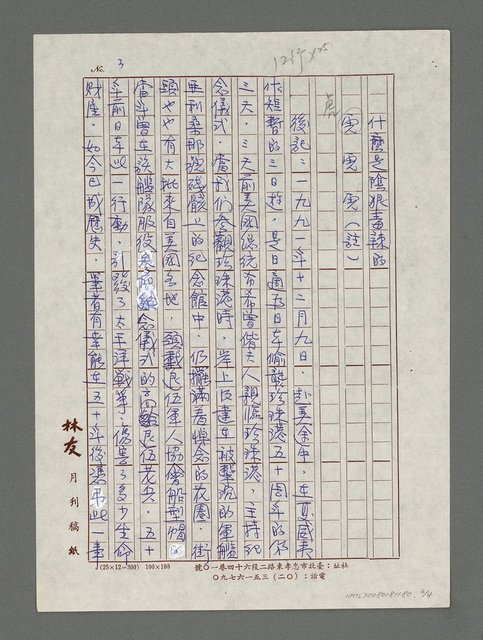 № 3
1237×25
什麼是陰狠毒辣的
電 電 電(註)
後記:一九九一年十二月九日,赴美途中,在夏威夷
作短暫的三日遊,是日適為日本偷襲珍珠港五十周年的第
三天,三天前美國總統布希曾偕夫人親臨珍珠港,主持紀
念儀式。當我們參觀珍珠港時,岸上及建在被擊沉的軍艦
亞利桑那號殘骸上的紀念館中,仍擺滿著悼念的花圈,街
頭也有大批來自美國各地,頭戴退伍軍人協會船型帽
當年曾在該艦隊服役 念儀式的高齡退伍老兵,五十
年前日本此一行動,引發了太平洋戰爭,傷害了多少生命
財產,如今已成歷史,筆者有幸能在五十年後憑弔此一事
林友 月刊稿紙
(25×12=300) 100×100
社址:臺北市忠孝東路二段六十四巷一〇號
電話:(〇二)三五一六七九〇
NMTL20080181180 3/4